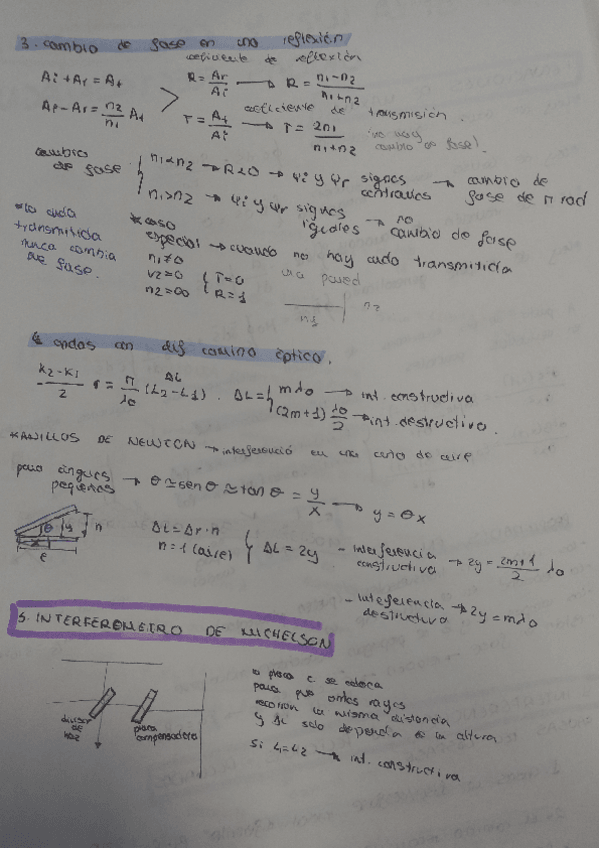 3. cambio de fase en una reflexión
coeficiente de reflexión
Ai + Ar = At
R = Ar/Ai → R = (n1-n2)/(n1+n2)
Ai - Ar = n2/n1 At
coeficiente de transmisión
T = At/Ai → T = 2n1/(n1+n2)
(no hay cambio de fase)
cambio de fase
n1<n2 → R<0 → ψi y ψr signos contrarios → cambio de fase de π rad
n1>n2 → ψi y ψr signos iguales → no cambio de fase
*la onda transmitida nunca cambia de fase.
*caso especial → cuando no hay onda transmitida
n1≠0
v2=0
n2=∞
T=0
R=1
una pared
n1
n2
4 ondas con dif camino óptico.
k2-k1/2 r = π/λ0 (L2-L1).
ΔL
ΔL =
mλ0 → int. constructiva
(2m+1) λ0/2 → int. destructiva.
*ANILLOS DE NEWTON → interferenció en una cuña de aire
para ángulos pequeños → θ ≃ sen θ ≃ tan θ = y/x → y = θx
θ
y
h
x
e
ΔL = Δr·n
n=1 (aire)
ΔL = 2y
- interferencia constructiva → 2y = (2m+1)/2 λ0
- interferencia destructiva → 2y = mλ0
5. INTERFEROMETRO DE MICHELSON
divisor de haz
placa compensadora
la placa c se coloca
para que ambos rayos
recorran la misma distancia
y ΔL solo dependa de la altura
Si L1=L2 → int. constructiva